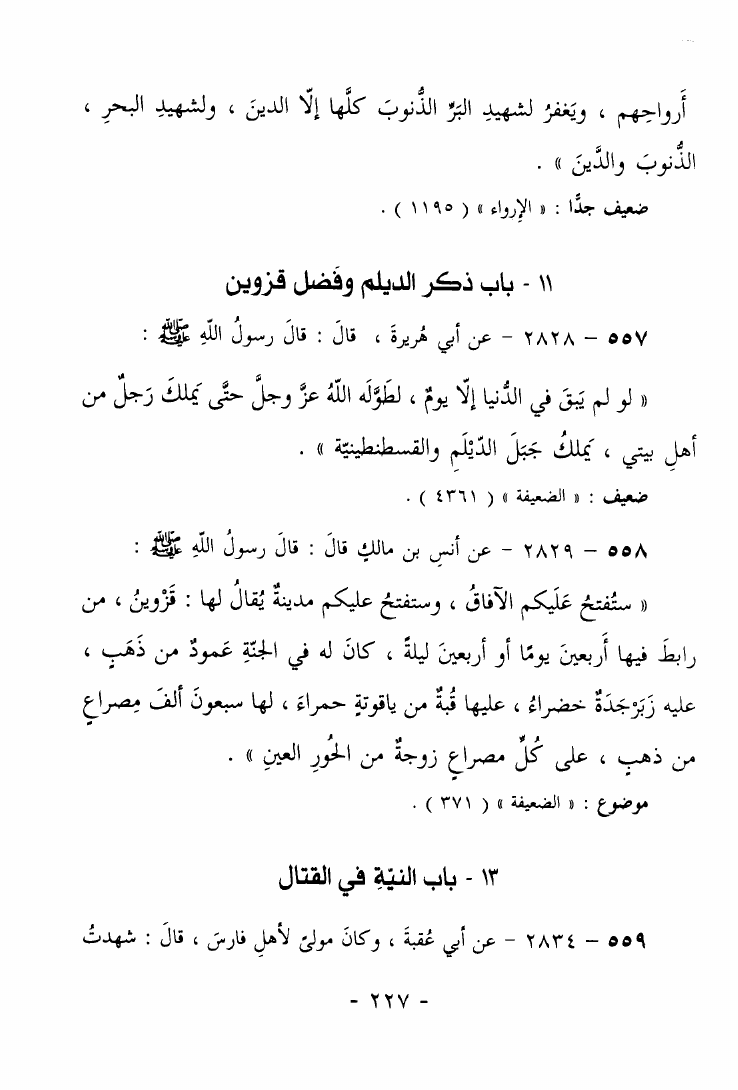 أَرواحِهم ، ويَغفرُ لشهيدِ البَرِّ الذُّنوبَ كلَّها إلّا الدينَ ، ولشهيدِ البحرِ ،
الذُّنوبَ والدَّينَ » .
ضعيف جدًّا : « الإرواء » ( ١١٩٥ ) .
١١ - باب ذكر الديلم وفَضل قزوين
٥٥٧ – ٢٨٢٨ – عن أبي هُريرةَ ، قالَ : قالَ رسولُ اللّهِ ﷺ :
« لو لم يَبقَ في الدُّنيا إلّا يومٌ ، لطَوَّلَه اللّهُ عزَّ وجلَّ حتَّى يَملكَ رَجلٌ من
أهلِ بيتي ، يَملكُ جَبَلَ الدّيْلَمِ والقسطنطينيّة » .
ضعيف : « الضعيفة » ( ٤٣٦١ ) .
٥٥٨ – ٢٨٢٩ – عن أنسِ بن مالكٍ قالَ : قالَ رسولُ اللّهِ ﷺ :
« ستُفتحُ عَلَيكم الآفاقُ ، وستفتحُ عليكم مدينةٌ يُقالُ لها : قَزْوينُ ، من
رابطَ فيها أَربعينَ يومًا أو أربعينَ ليلةً ، كانَ له في الجنّةِ عَمودٌ من ذَهَبٍ ،
عليه زَبَرْجَدَةٌ خضراءُ ، عليها قُبةٌ من ياقوتةٍ حمراءَ ، لها سبعونَ ألفَ مِصراعٍ
من ذهبٍ ، على كُلِّ مصراعٍ زوجةٌ من الحُورِ العينِ » .
موضوع : « الضعيفة » ( ٣٧١ ) .
١٣ - باب النيّةِ في القتال
٥٥٩ – ٢٨٣٤ – عن أبي عُقبةَ ، وكانَ مولىً لأهلِ فارسَ ، قالَ : شهدتُ
- ٢٢٧ -